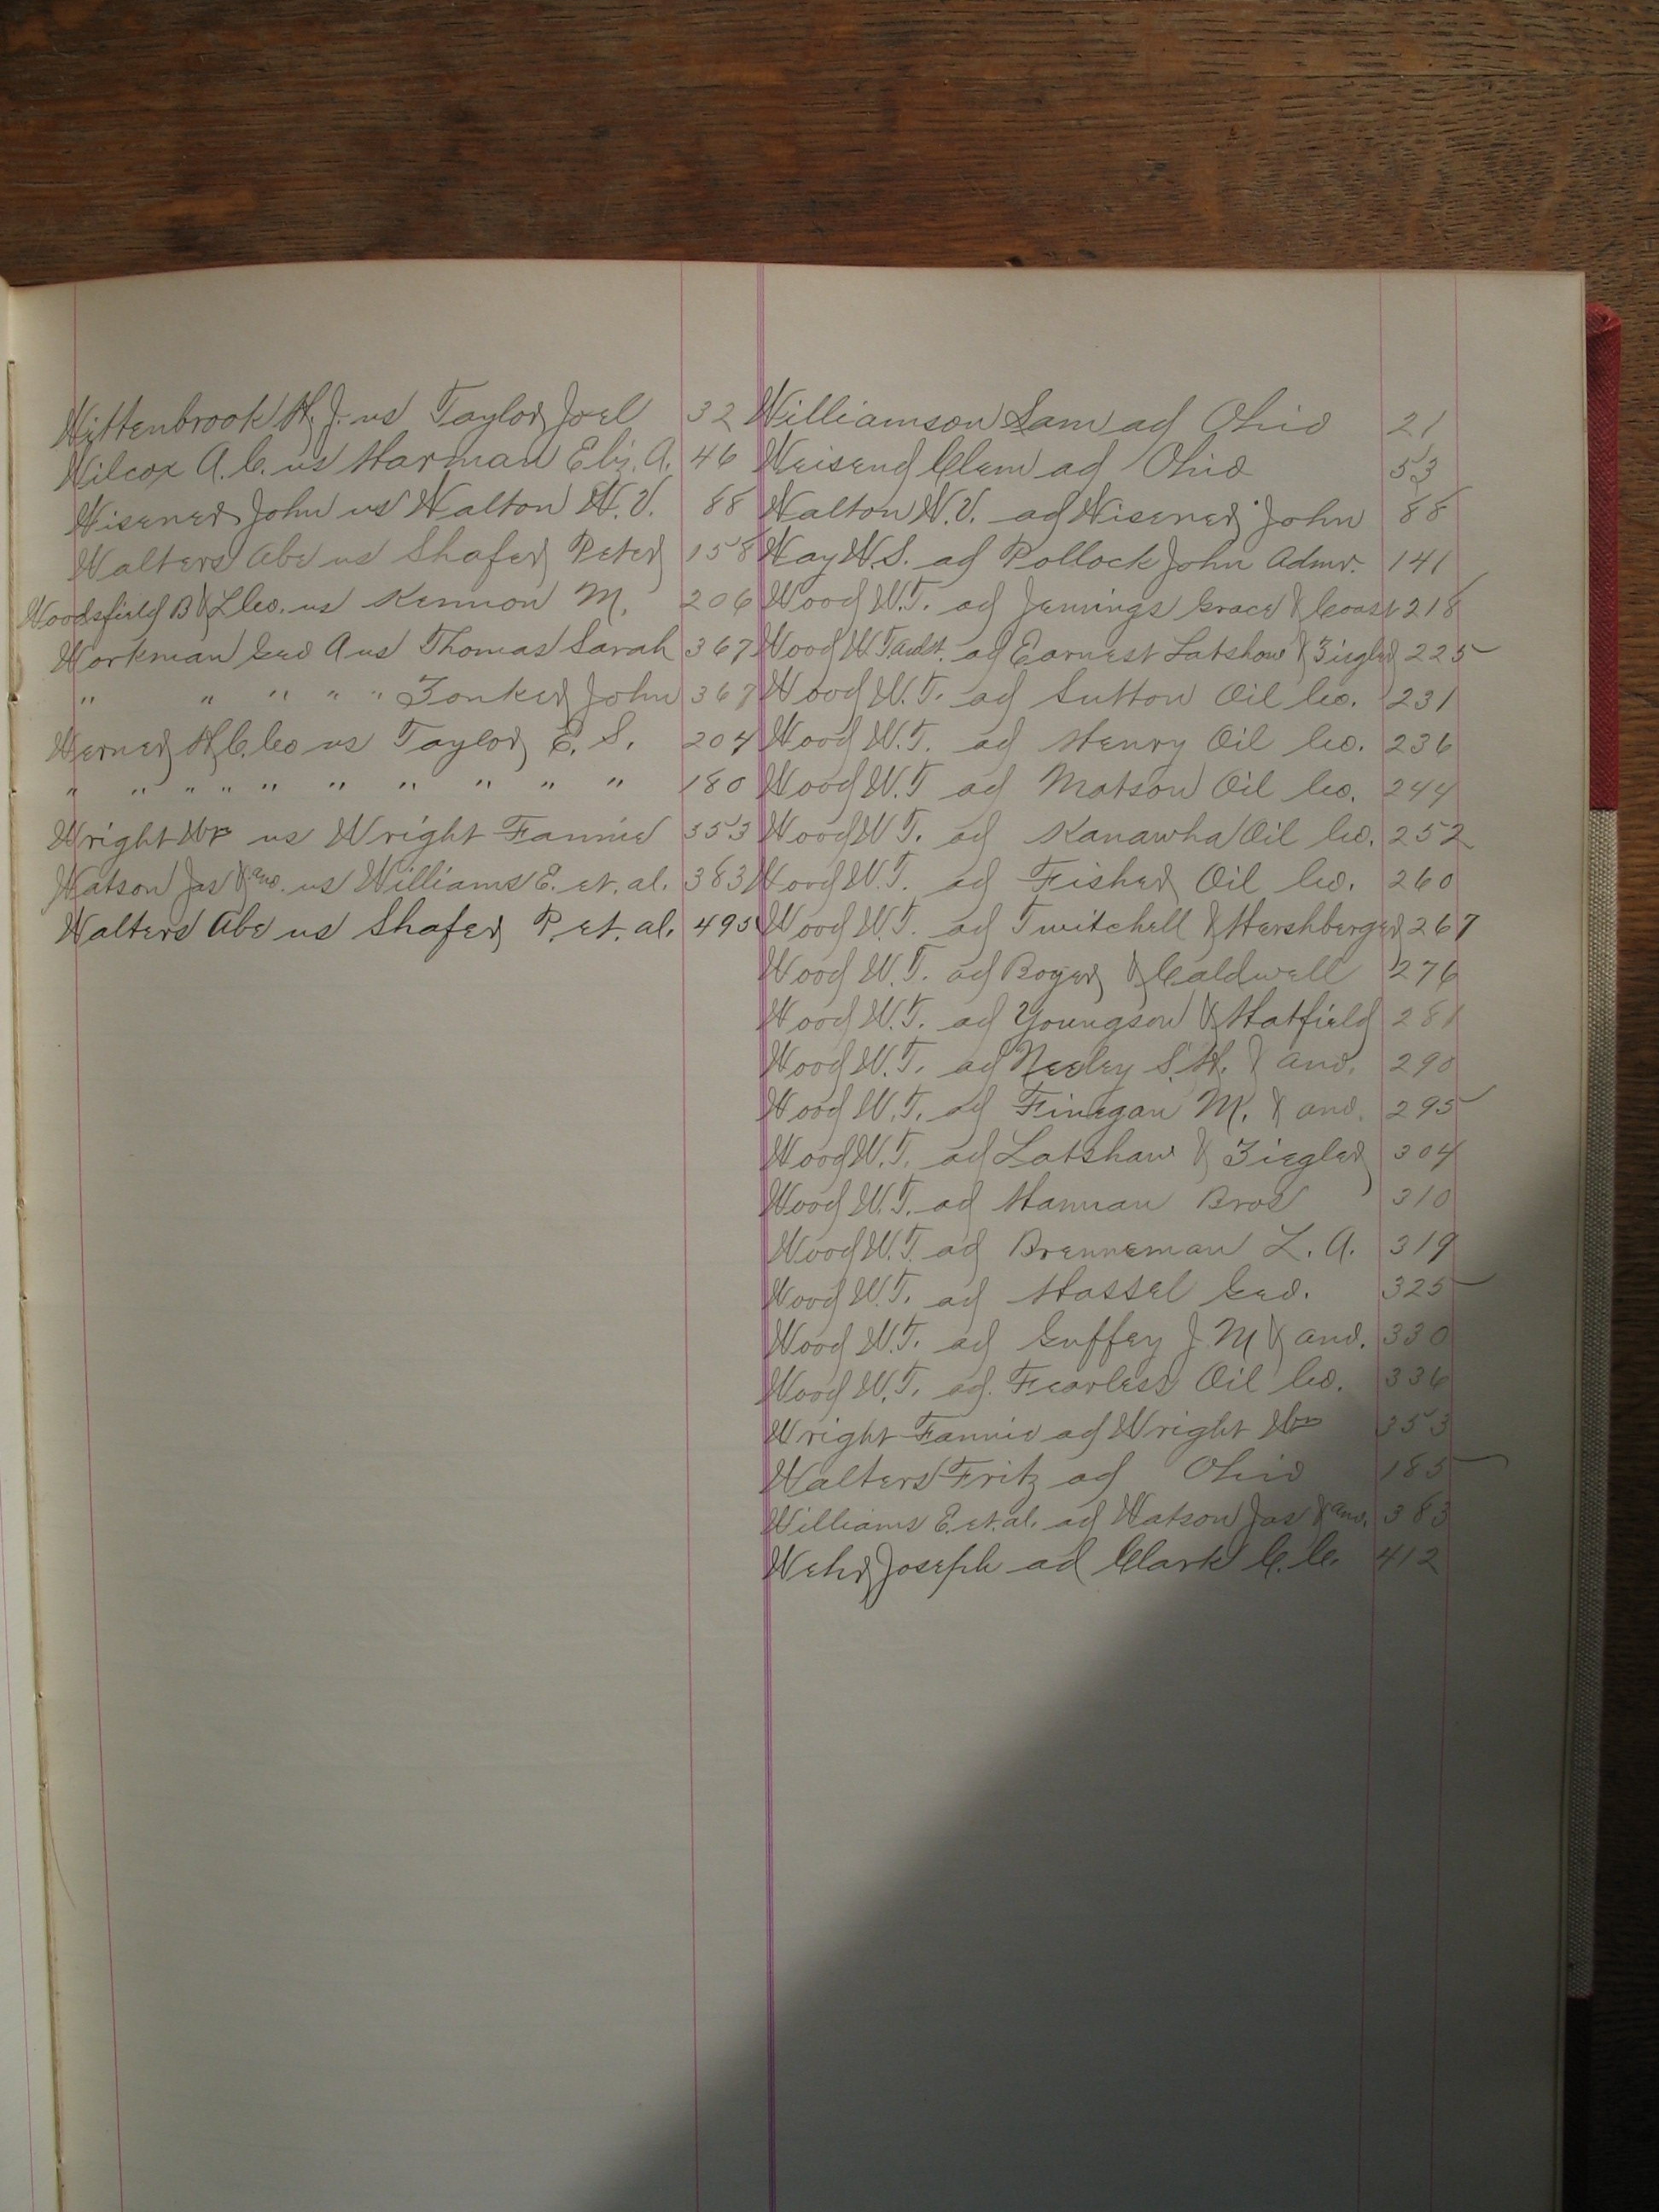 Wittenbrook H. J. vs Taylor Joel 32
Wilcox A. C. vs Harman Eliz. A. 46
Wisener John vs Walton W. V. 88
Walters Abe vs Shafer Peter 158
Woodsfield B & L Co. vs Kennon M. 206
Workman Geo A vs Thomas Sarah 367
" " " " " Zonker John 367
Werner H. C. Co vs Taylor E. S. 204
" " " " " " " " " " 180
Wright Wm vs Wright Fannie 353
Watson Jas & ano. vs Williams E. et. al. 383
Walters Abe vs Shafer P. et. al. 495
Williamson Sam ad Ohio 21
Weisend Clem ad Ohio 53
Walton W. V. ad Wisener John 88
Way W. S. ad Pollock John Admr. 141
Wood W. T. ad Jennings Grace & Coast 218
Wood W. T. ad Earnest Latshaw & Ziegler 225
Wood W. T. ad Sutton Oil Co. 231
Wood W. T. ad Henry Oil Co. 236
Wood W. T ad Matson Oil Co. 244
Wood W T. ad Kanawha Oil Co. 252
Wood W. T. ad Fisher Oil Co. 260
Wood W. T. ad Twitchell & Hershberger 267
Wood W. T. ad Boyer & Caldwell 276
Wood W. T. ad Youngson & Hatfield 281
Wood W. T. ad Neeley S. H. & ano. 290
Wood W. T. ad Finegan M. & ano. 295
Wood W. T. ad Latshaw & Ziegler 304
Wood W. T. ad Hannan Bros 310
Wood W. T. ad Brenneman L. A. 319
Wood W. T. ad Hassel Geo. 325
Wood W. T. ad Guffey J. M & ano. 330
Wood W. T. ad. Fearless Oil Co. 336
Wright Fannie ad Wright Wm 353
Walters Fritz ad Ohio 185
Williams E. et. al. ad Watson Jas & ano. 383
Wehr Joseph ad Clark C. C. 412